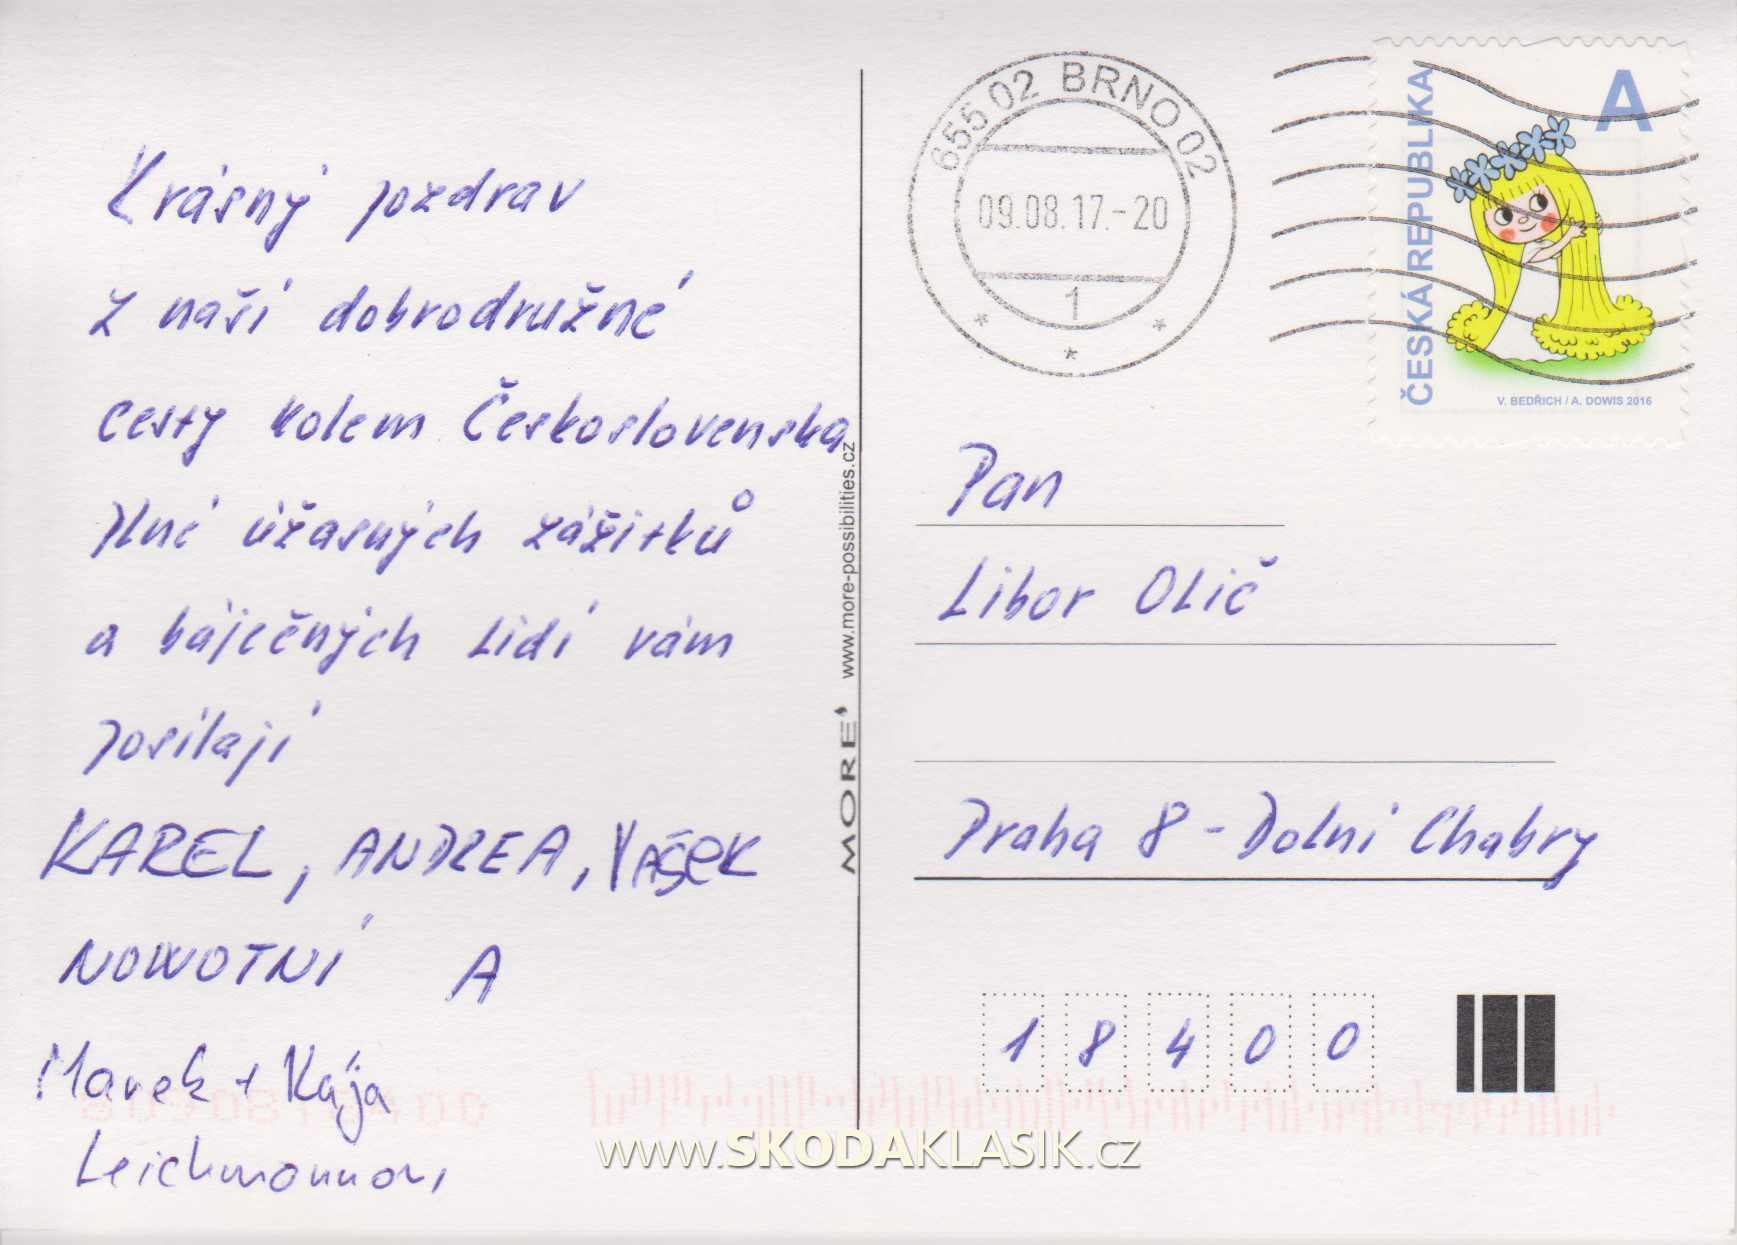 Krásný pozdrav
z naší dobrodružné
cesty kolem Československa
plné úžasných zážitků
a báječných lidí vám
posílají
KAREL, ANDREA, VAŠEK
NOWOTNÍ A
Marek + Kája
Leichmannovi
MORE
www.more-possibilities.cz
655 02 BRNO 02
09.08.17.-20
1
ČESKÁ REPUBLIKA
A
V. BEDŘICH / A. DOWIS 2016
Pan
Libor Olič
Praha 8 - Dolní Chabry
18400
www.SKODAKLASIK.cz